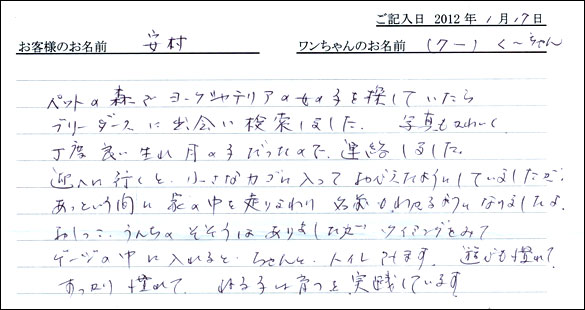 ご記入日 2012年 1月17日
お客様のお名前 安村 ワンちゃんのお名前 (クー) くーちゃん
ペットの森でヨークシャテリアの女の子を探していたら
ブリーダースに出会い検索しました。 写真もかわいく
丁度良い生れ月の子だったので、連絡しました。
迎へに行くと、小さなカゴに入っておびえたようにしていましたが、
あっという間に家の中を走りまわり 名前もわかるようになりましたよ。
おしっこ、うんちのそそうはありましたが タイミングをみて
ゲージの中に入れると、ちゃんと、トイレできます。 遊びも慣れて
すっかり慣れて、ねる子は育つを実践しています